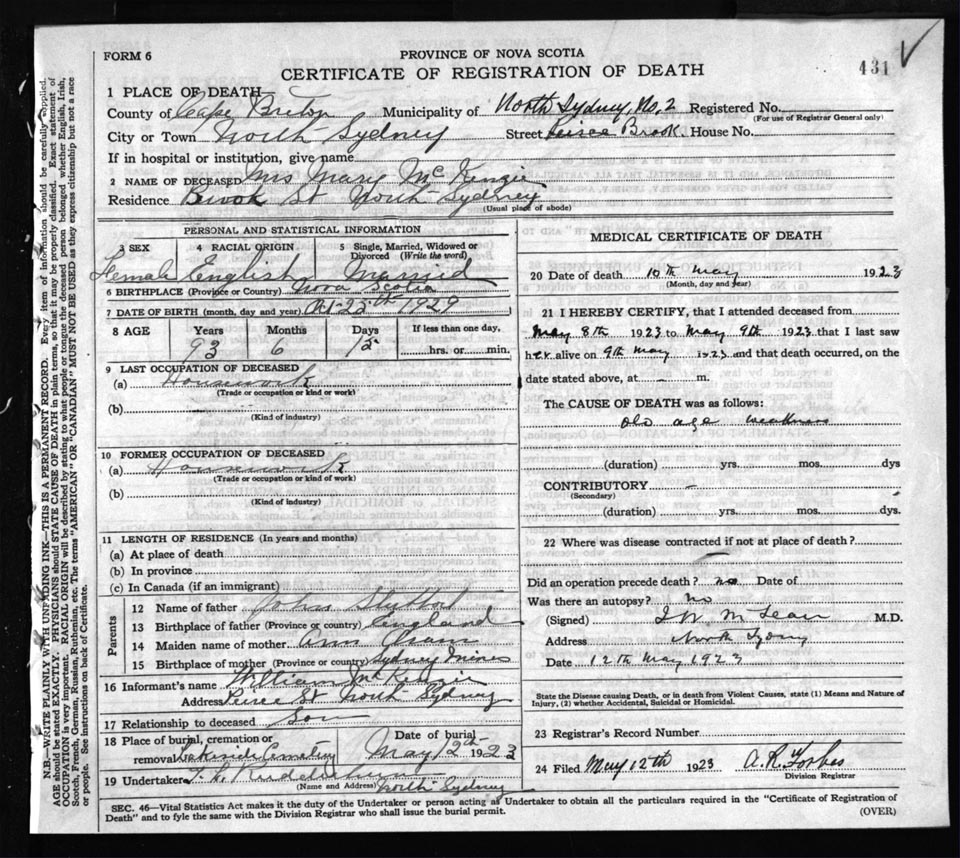 FORM 6
PROVINCE OF NOVA SCOTIA
CERTIFICATE OF REGISTRATION OF DEATH
431
1 PLACE OF DEATH
County of Cape Breton Municipality of North Sydney, No. 2 Registered No.
(For use of Registrar General only)
City or Town North Sydney Street Peirce Brook House No.
If in hospital or institution, give name
2 NAME OF DECEASED Mrs Mary McKenzie
Residence Brook St North Sydney
(Usual place of abode)
PERSONAL AND STATISTICAL INFORMATION
3 SEX 4 RACIAL ORIGIN 5 Single, Married, Widowed or Divorced (Write the word)
Female English Married
6 BIRTHPLACE (Province or Country) Nova Scotia
7 DATE OF BIRTH (month, day and year) Oct 25th 1929
8 AGE Years Months Days If less than one day,
93 6 15 hrs. or min.
9 LAST OCCUPATION OF DECEASED
(a) Housework
(Trade or occupation or kind or work)
(b)
(Kind of industry)
10 FORMER OCCUPATION OF DECEASED
(a) Housework
(Trade or occupation or kind of work)
(b)
(Kind of industry)
11 LENGTH OF RESIDENCE (In years and months)
(a) At place of death
(b) In province
(c) In Canada (if an immigrant)
Parents
12 Name of father John
13 Birthplace of father (Province or country) England
14 Maiden name of mother Ann
15 Birthplace of mother (Province or country) Sydney Mines
16 Informant's name William McKenzie
Address Peirce St North Sydney
17 Relationship to deceased Son
18 Place of burial, cremation or removal Lakeside Cemetery Date of burial May 12th 1923
19 Undertaker
(Name and Address) North Sydney
MEDICAL CERTIFICATE OF DEATH
20 Date of death 10th May 1923
(Month, day and year)
21 I HEREBY CERTIFY, that I attended deceased from
May 8th 1923 to May 9th 1923 that I last saw
her alive on 9th May 1923 and that death occurred, on the
date stated above, at - m.
The CAUSE OF DEATH was as follows:
old age weakness
(duration) yrs. mos. dys
CONTRIBUTORY
(Secondary)
(duration) yrs. mos. dys.
22 Where was disease contracted if not at place of death?
Did an operation precede death? no Date of
Was there an autopsy? no
(Signed) J W McLean M.D.
Address North Sydney
Date 12th May 1923
State the Disease causing Death, or in death from Violent Causes, state (1) Means and Nature of
Injury, (2) whether Accidental, Suicidal or Homicidal.
23 Registrar's Record Number
24 Filed May 12th 1923 A. R. Forbes
Division Registrar
SEC. 46—Vital Statistics Act makes it the duty of the Undertaker or person acting as Undertaker to obtain all the particulars required in the "Certificate of Registration of
Death" and to fyle the same with the Division Registrar who shall issue the burial permit.
(OVER)
N.B.—WRITE PLAINLY WITH UNFADING INK—THIS IS A PERMANENT RECORD. Every item of information should be carefully supplied.
AGE should be stated EXACTLY. PHYSICIANS should STATE CAUSE OF DEATH in plain terms, so that it may be properly classified. Exact statement of
OCCUPATION is very important. RACIAL ORIGIN will be described by stating to what people or tongue the deceased person belonged whether English, Irish,
Scotch, French, German, Russian, Ruthenian, etc. The terms "AMERICAN" or "CANADIAN" MUST NOT BE USED as they express citizenship but not a race
or people. See instructions on back of Certificate.